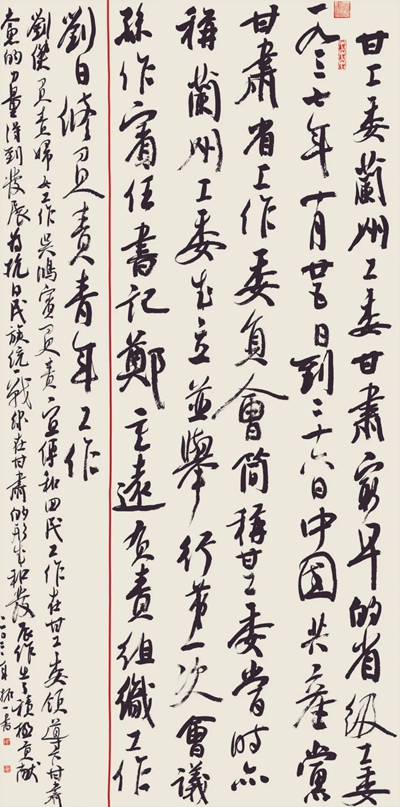 甘工委蘭州工委甘肅最早的省級工委
一九三七年十月廿五日到二十六日中國共產黨
甘肅省工作委員會简稱甘工委當時亦
稱蘭州工委成立並舉行第一次會議
孫作賓任書記鄭重遠負責組織工作
劉日修負責青年工作
劉傑負責婦女工作吳鴻賓負責宣傳和回民工作在甘工委領導下甘肅
黨的力量得到發展為抗日民族統戰線在甘肅的形成和發展作出了積極貢獻